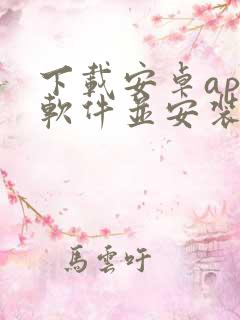 下載安卓ap
軟件並安裝
馬雲吁